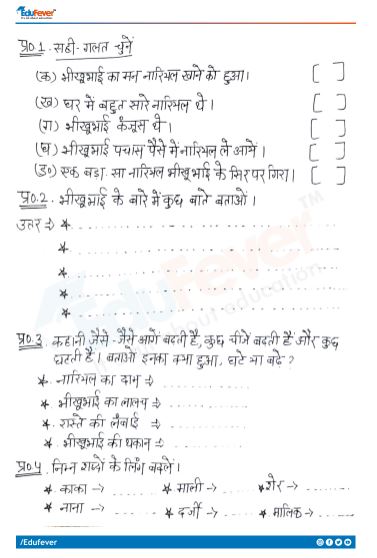 EduFever
प्र०.1. सही-गलत चुनें
(क) भीखूभाई का मन नारियल खाने को हुआ। [ ]
(ख) घर में बहुत सारे नारियल थे। [ ]
(ग) भीखूभाई कंजूस थे। [ ]
(घ) भीखूभाई पचास पैसे में नारियल ले आये। [ ]
(ड०) एक बड़ा सा नारियल भीखूभाई के सिर पर गिरा। [ ]
प्र०.2. भीखूभाई के बारे में कुछ बाते बताओ।
उत्तर ⇒ * ....................
* ....................
* ....................
* ....................
* ....................
प्र०.3 कहानी जैसे-जैसे आगे बढती है, कुछ चीजें बढती हैं और कुछ
घटती हैं। बताओ इनका क्या हुआ, घटे या बढे?
* नारियल का दाम ⇒ ..............
* भीखूभाई का लालच ⇒ ..............
* रास्ते की लंबाई ⇒ ..............
* भीखूभाई की थकान ⇒ ..............
प्र०.4. निम्न शब्दों के लिंग बदलें।
* काका → ........ * माली → ........ * शेर → ........
* नाना → ........ * दर्जी → ........ * मालिक → ........
/Edufever
EduFever
all about education
TM